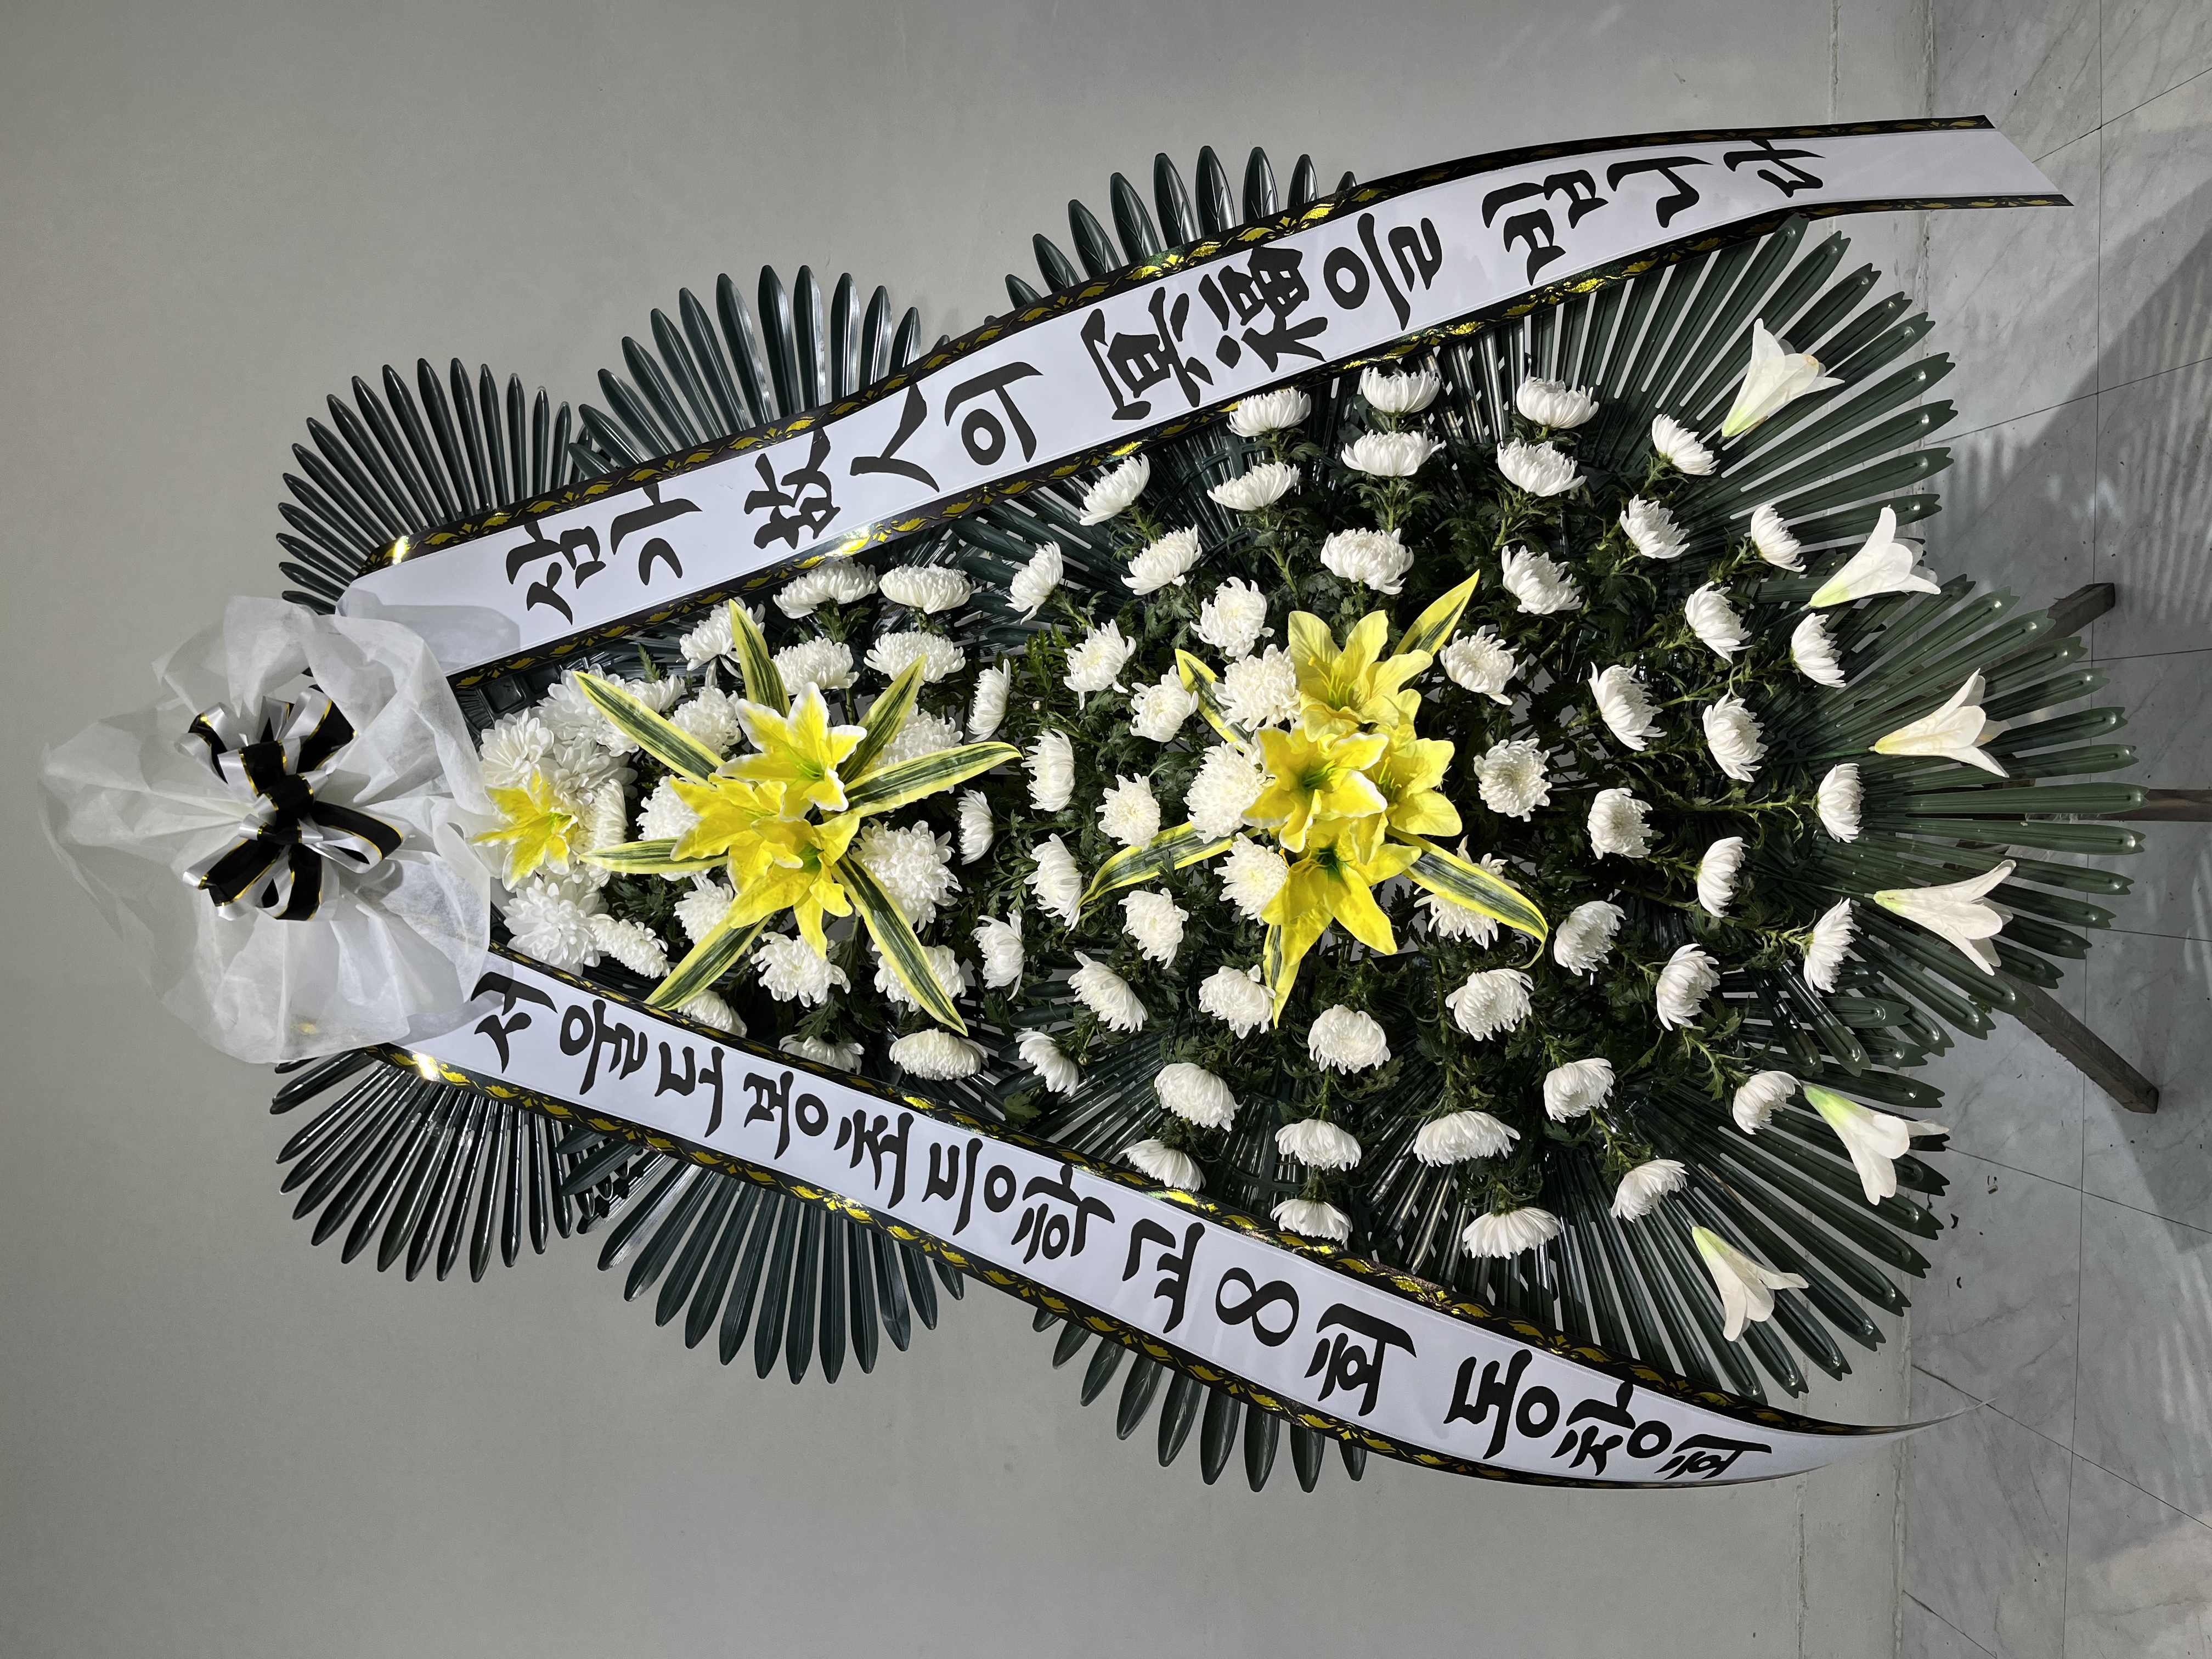 삼가 故人의 冥福을 빕니다
서울더봄초등학교 8회 동창회